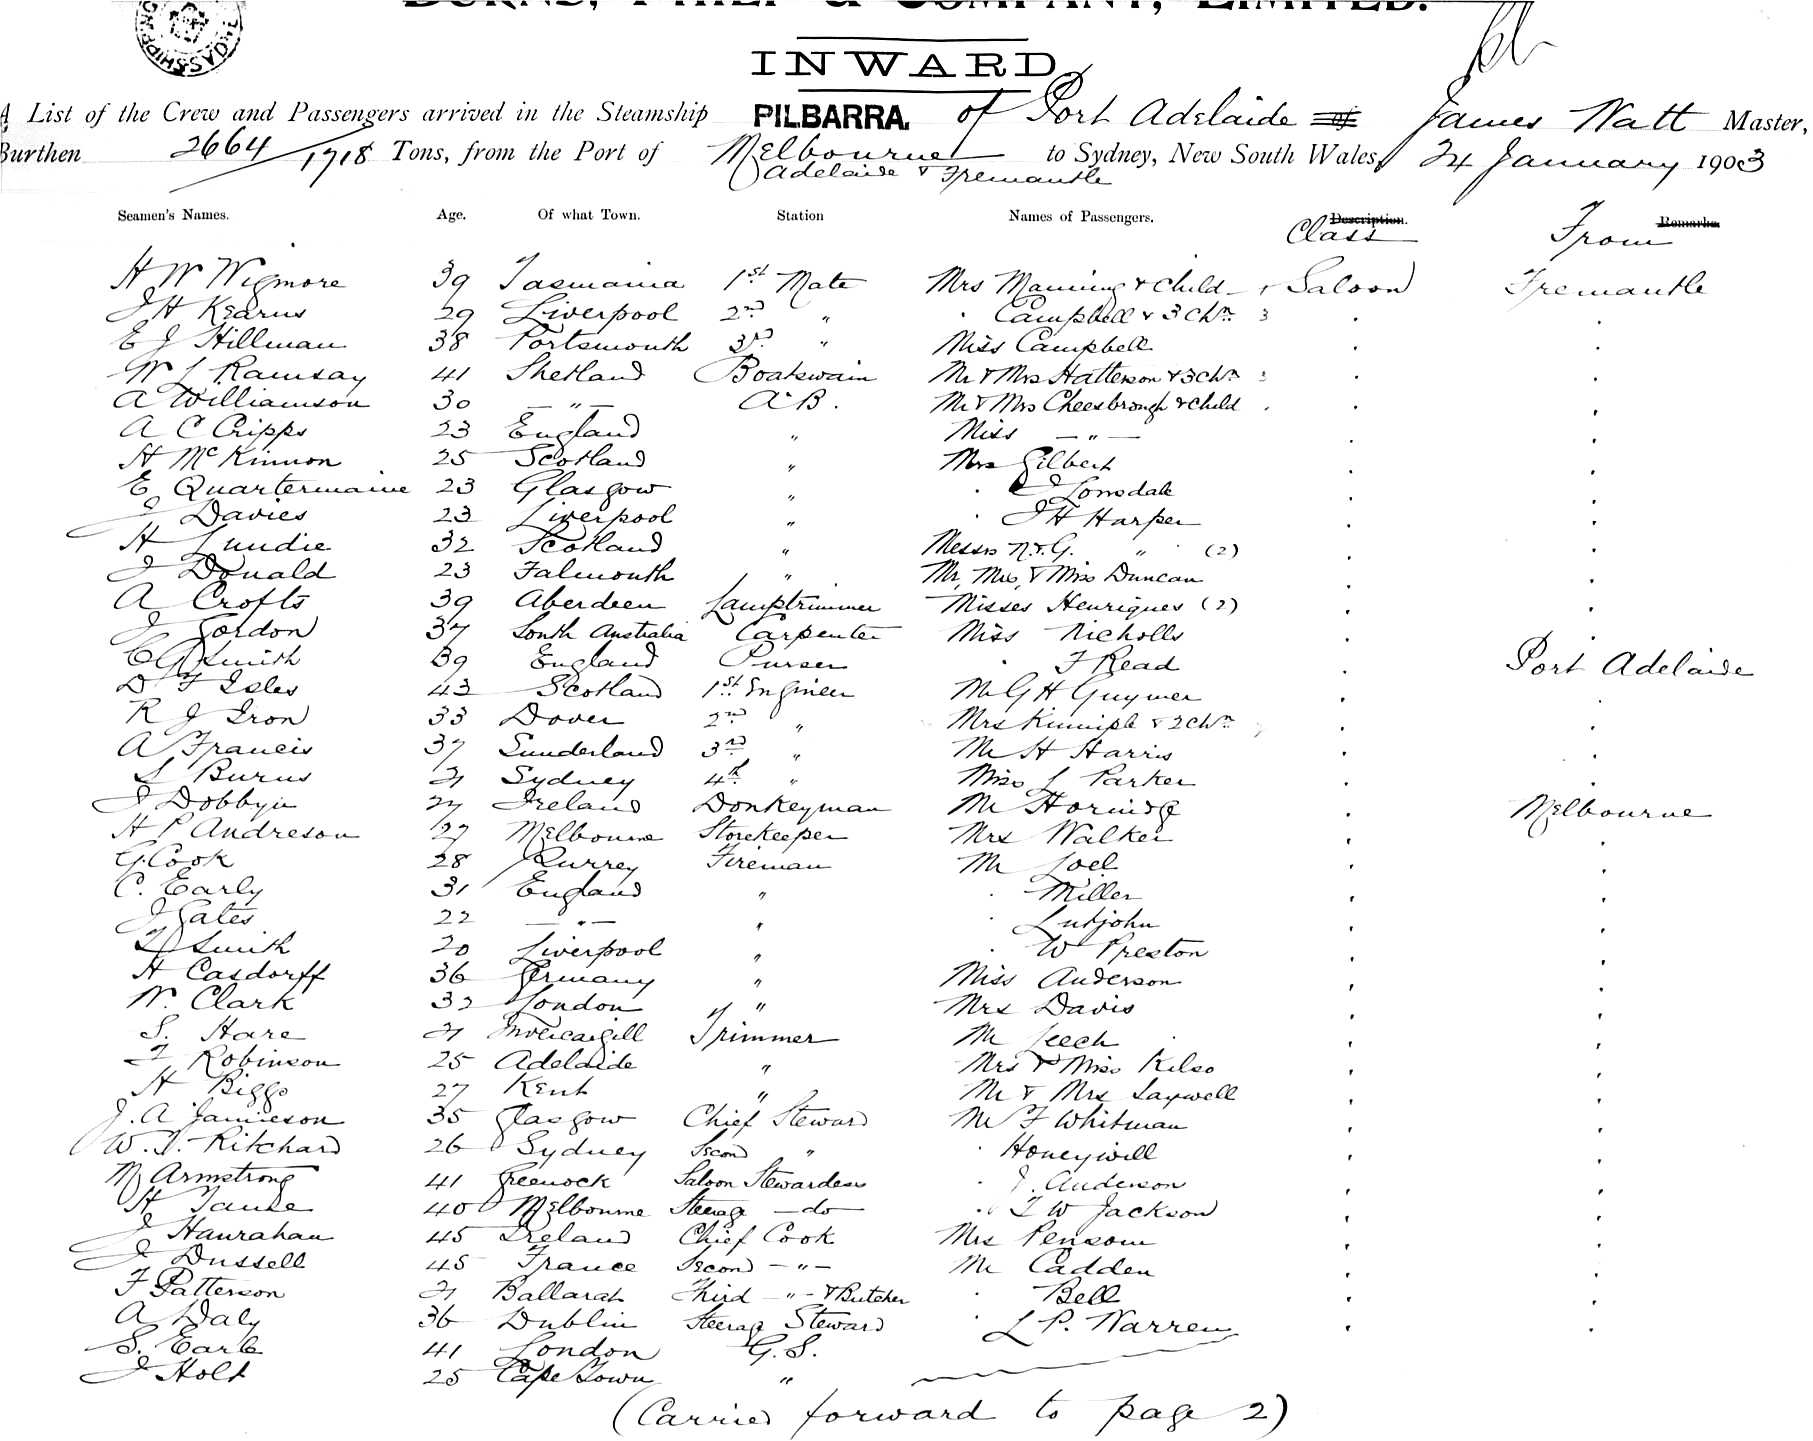 BURNS, PHILP & COMPANY, LIMITED.
INWARD
A List of the Crew and Passengers arrived in the Steamship PILBARRA, of Port Adelaide of James Watt Master,
Burthen 2664/1718 Tons, from the Port of Melbourne to Sydney, New South Wales, 24 January 1903
Adelaide & Fremantle
Seamen's Names. Age. Of what Town. Station Names of Passengers. Description. Remarks
Class From
H W Wigmore 39 Tasmania 1st Mate Mrs Manning & Child Saloon Fremantle
J H Kearns 29 Liverpool 2nd " " Campbell & 3 Chn 3 " "
E J Hillman 38 Portsmouth 3rd " Miss Campbell " "
W L Ramsay 41 Shetland Boatswain Mr & Mrs Hatterson & 3 Chn " "
A Williamson 30 — " — A.B. Mr & Mrs Cheesbrough & Child " "
A C Cripps 23 England " Miss — " — " "
H McKinnon 25 Scotland " Mrs Gilbert " "
E Quartermaine 23 Glasgow " " Lonsdale " "
J Davies 23 Liverpool " " J H Harper " "
H Lundie 32 Scotland " Messrs N. & G. " (2) " "
J Donald 23 Falmouth " Mr, Mrs, & Miss Duncan " "
A Crofts 39 Aberdeen Lamptrimmer Misses Henriques (2) " "
J Gordon 37 South Australia Carpenter Miss Nicholls " "
C G Smith 39 England Purser " F Read " Port Adelaide
D F Isles 43 Scotland 1st Engineer Mr G H Guymer " "
R J Iron 33 Dover 2nd " Mrs Kinniple & 2 Chn " "
A Francis 37 Sunderland 3rd " Mr H Harris " "
L Burns 21 Sydney 4th " Miss L Parker " "
J Dobbyn 27 Ireland Donkeyman Mr Horni&g " Melbourne
H P Andreson 27 Melbourne Storekeeper Mrs Walker " "
G. Cook 28 Surrey Fireman Mr Joel " "
C. Early 31 England " " Miller " "
J Gates 22 — " — " " Lutjohn " "
T Smith 20 Liverpool " " W Preston " "
H Casdorff 36 Germany " Miss Anderson " "
W. Clark 32 London " " Mrs Davis " "
S. Hare 21 Invercargill Trimmer Mr Leech " "
F Robinson 25 Adelaide " Mrs & Miss Kelso " "
H Biggs 27 Kent " Mr & Mrs Saywell " "
J. A. Jamieson 35 Glasgow Chief Steward Mr F Whitman " "
W. T. Ritchard 26 Sydney Second " " Honeywill " "
M Armstrong 41 Greenock Saloon Stewardess " J. Anderson " "
H Tanke 40 Melbourne Steerage — do — " T W Jackson " "
J Hanrahan 45 Ireland Chief Cook Mrs Pensom " "
J Dussell 45 France Second — " — Mr Cadden " "
F Patterson 21 Ballarat Third — " — & Butcher " Bell " "
A Daly 36 Dublin Steerage Steward L P. Warren " "
S. Earle 41 London G.S.
J Holt 25 Cape Town "
(Carried forward to page 2)